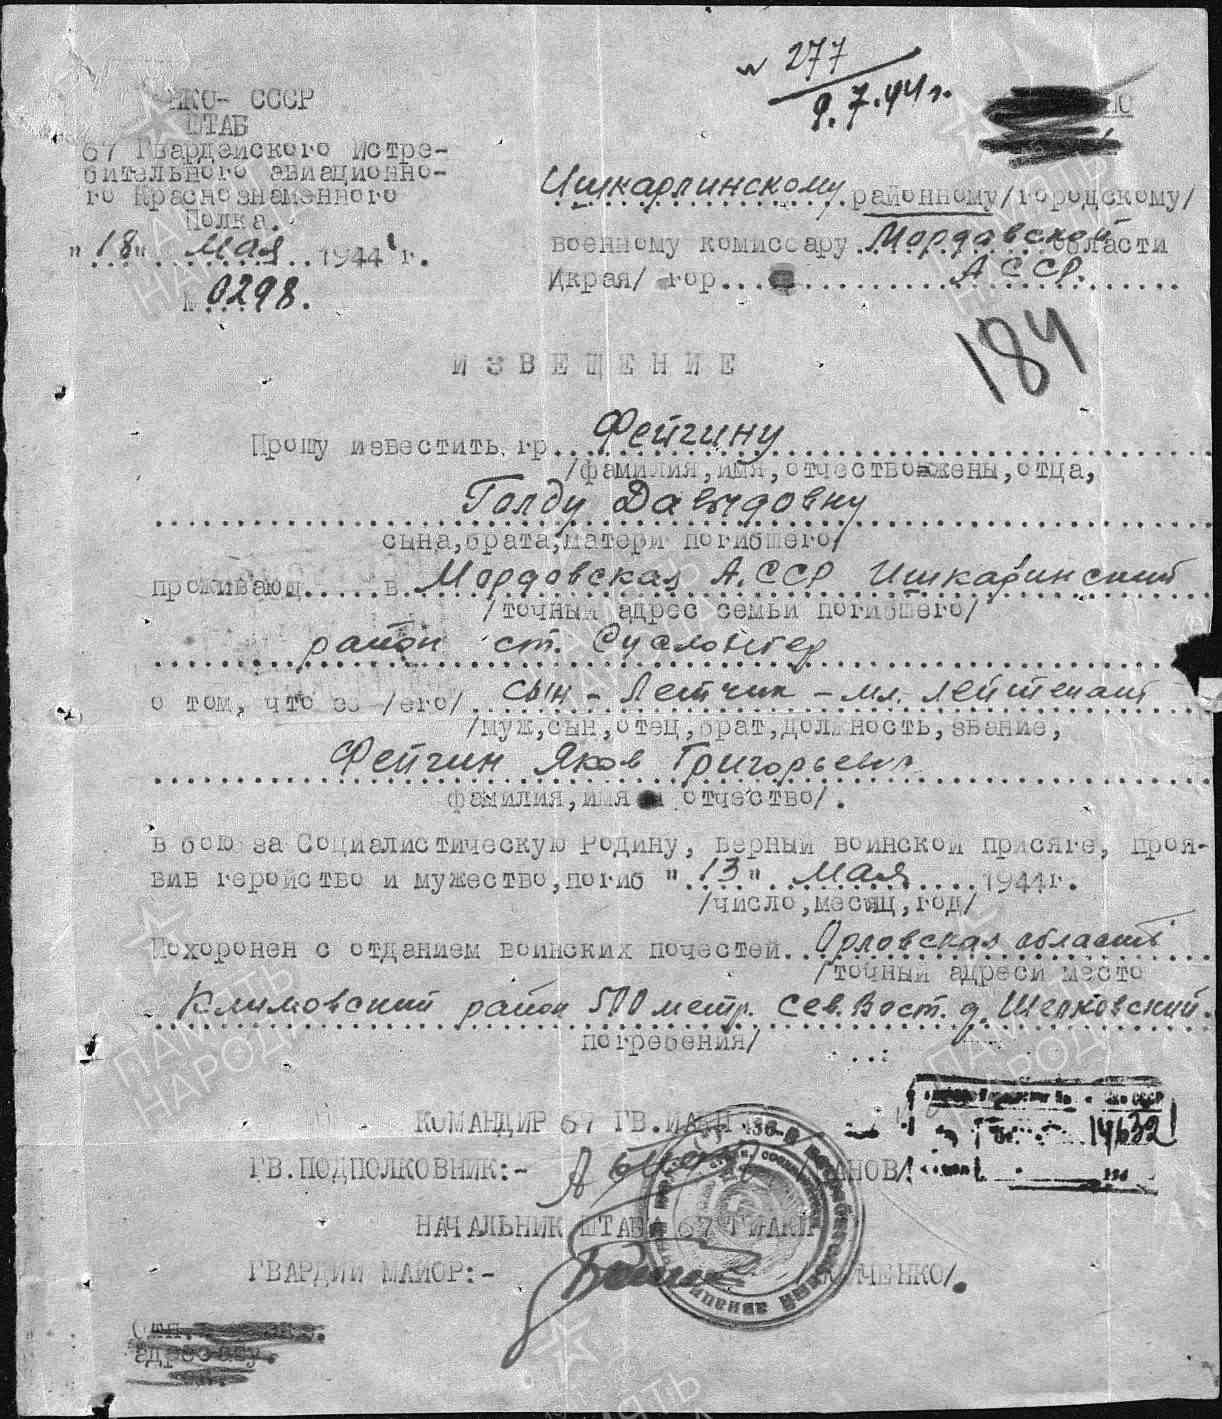 № 277
9.7.44 г.
НКО- СССР
ШТАБ
67 Гвардейского Истре-
бительного авиационно-
го Краснознаменного
Полка.
"18" Мая 1944 г.
№ 0298.
Ишкарлинскому районному/городскому/
военному комиссару Мордовской области
Икрая/ гор.
АССР.
184
ИЗВЕЩЕНИЕ
Прошу известить гр. Фейгину
/фамилия,имя,отчество жены,отца,
Голду Давыдовну
сына,брата,матери погибшего/
проживающ.....в Мордовская А.ССР Ишкаринский
/точный адрес семьи погибшего/
район ст. Суслонгер
о том, что ее /его/ сын - Летчик - мл. лейтенант
/муж,сын,отец,брат,должность,звание,
Фейгин Яков Григорьевич
фамилия,имя и отчество/.
в бою за Социалистическую Родину, верный воинской присяге, проя-
вив геройство и мужество,погиб "13" Мая 1944г.
/число,месяц,год/
Похоронен с отданием воинских почестей Орловская область
/точный адреси место
Климовский район 500 метр. Сев.Вост. д. Шелковский.
погребения/
КОМАНДИР 67 ГВ.ИАКП
14632
ГВ.ПОДПОЛКОВНИК:-
НАЧАЛЬНИК ШТАБА 67 ГИАКП
ГВАРДИИ МАЙОР:- ЧЕНКО/.
ПАМЯТЬ
НАРОДА